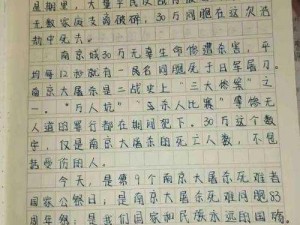 星期里，大量平民及战俘被
无数家庭支离破碎，30万同胞在这次浩
劫中死去。
"南京城30万无辜生命惨遭杀害，平
均每12秒就有一名同胞死于日军屠刀。
南京大屠杀是二战史上"三大惨案"之
一。"万人坑""杀人比赛"等惨无
人道的罪行都在期间犯下。30万这个数
字，仅是南京大屠杀的死亡人数，不包
括受伤的人。
今天，是第9个南京大屠杀死难者
国家公祭日；是南京大屠杀死难同胞85
周年祭；是我们国家和民族永远的国殇。